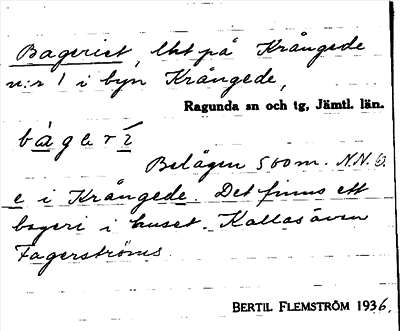 Bageriet, lht på Krångede
n:r 1 i byn Krångede,
Ragunda sn och tg, Jämtl. län.
bàgerí
Belägen 500m. N.N.O.
e i Krångede. Det finns ett
bageri i huset. Kallas även
Fagerströms
BERTIL FLEMSTRÖM 1936.